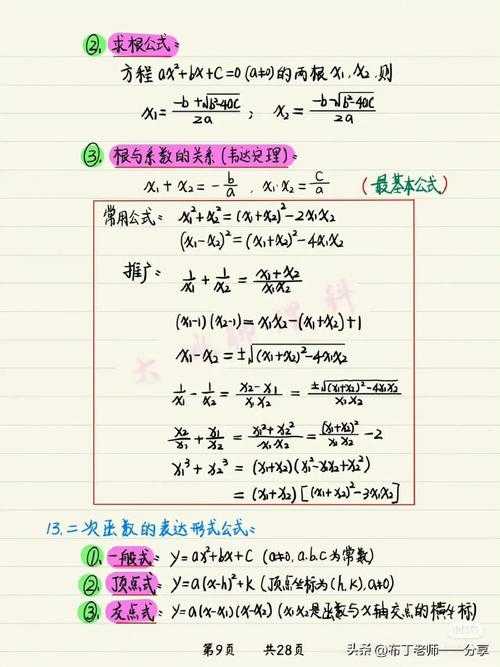 ②. 求根公式:
方程 ax²+bx+C=0 (a≠0) 的两根 x₁, x₂. 则
x₁ = (-b+√(b²-4aC))/2a ; x₂ = (-b-√(b²-4aC))/2a
③. 根与系数的关系 (韦达定理):
x₁+x₂ = -b/a , x₁·x₂ = C/a (最基本公式)
常用公式: x₁²+x₂² = (x₁+x₂)²-2x₁x₂
(x₁-x₂)² = (x₁+x₂)²-4x₁x₂
推广: 1/x₁ + 1/x₂ = (x₁+x₂)/(x₁x₂)
(x₁-1)(x₂-1) = x₁x₂-(x₁+x₂)+1
x₁-x₂ = ±√((x₁+x₂)²-4x₁x₂)
1/x₁ - 1/x₂ = (x₂-x₁)/(x₁x₂) = ±√((x₁+x₂)²-4x₁x₂)/(x₁x₂)
x₂/x₁ + x₁/x₂ = (x₁²+x₂²)/(x₁x₂) = (x₁+x₂)²/(x₁x₂) - 2
x₁³+x₂³ = (x₁+x₂)(x₁²-x₁x₂+x₂²)
= (x₁+x₂)[(x₁+x₂)²-3x₁x₂]
13. 二次函数的表达形式公式:
①. 一般式: y=ax²+bx+C (a≠0, a.b.c为常数)
②. 顶点式: y=a(x-h)²+k (顶点坐标为(h,k), a≠0)
③. 交点式: y=a(x-x₁)(x-x₂) (x₁x₂是函数与x轴交点的横坐标)
第9页 共28页
头条@布丁老师——分享